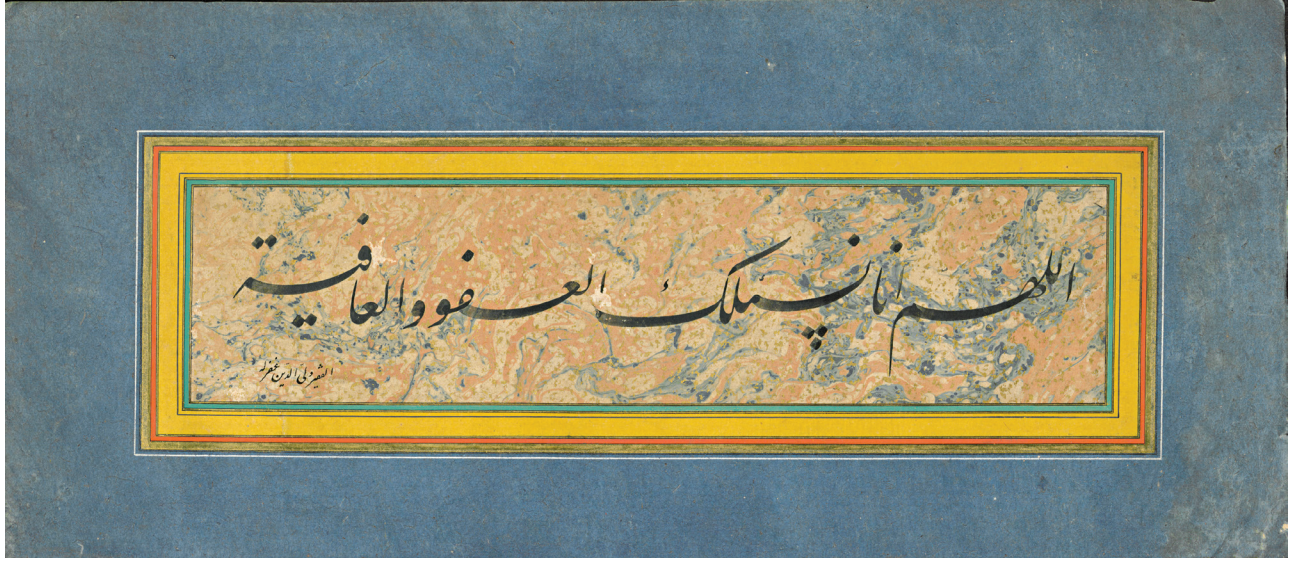 اللهم انا نسئلك العفو والعافية
الفقير ولی الدین غفر له